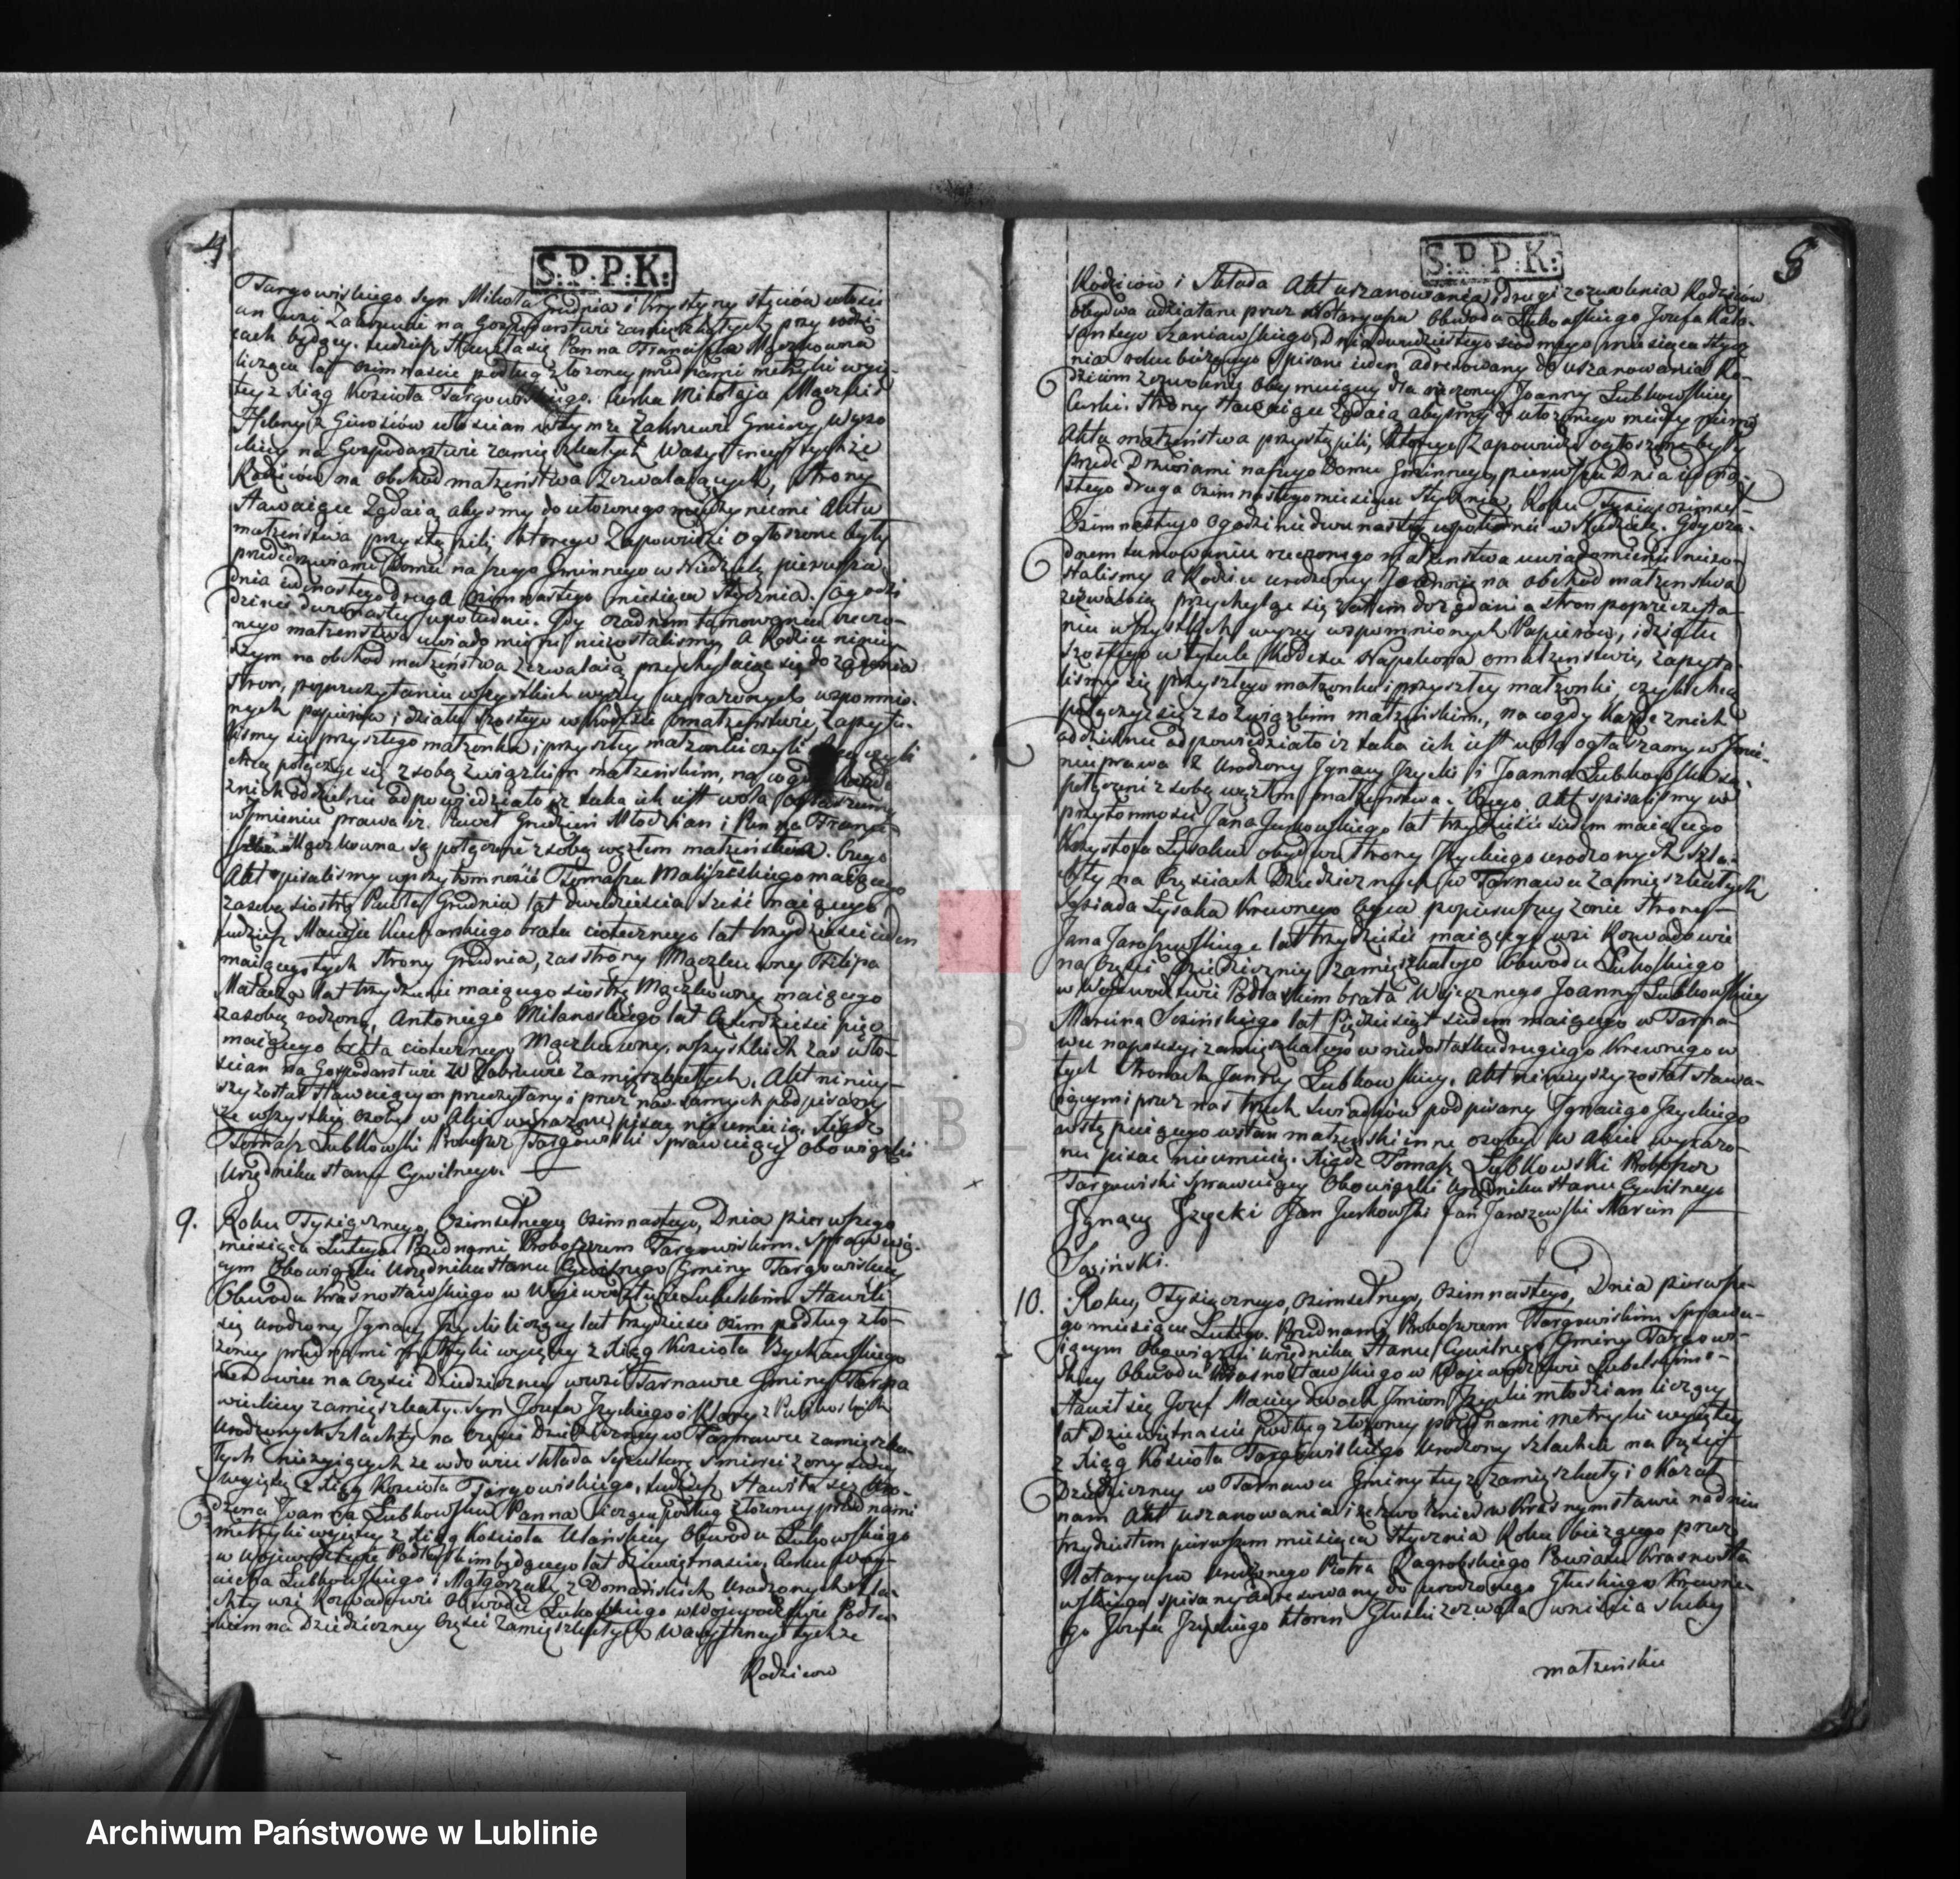 4
S:P:P:K:
Targowiskiego syn Mikołaja Grudnia i Krystyny
we wsi Zakrzewie na Gospodarstwie zamieszkałych przy rodzi-
cach będący, tudzież stawiła się Panna Franciszka Mączkowna
licząca lat ośmnaście podług złożoney przed nami metryki wyię-
tey z Xiąg Kościoła Targowiskiego, Curka Mikołaja Mączki i
Heleny z włościan w teyże Zakrzewie Gminy
na Gospodarstwie zamieszkałych w assystencyi tychże
Rodziców na obchód małżeństwa zezwalaiących, strony
stawaiące żądaią abyśmy do ułożonego między niemi Aktu
małżeństwa przystąpili, którego Zapowiedzi ogłoszone były
przede drzwiami Domu naszego Gminnego w Niedzielę pierwsza
dnia iedenastego druga osimnastego miesiąca Stycznia o godzi
dzinie dwunastey w południe. Gdy o żadnem tamowaniu rzeczo-
nego małżeństwa uwiadomieni niezostaliśmy, a Rodzice niniey-
szym na obchód małżeństwa zezwalaią, przychylaiąc się do żądania
stron, po przeczytaniu wszystkich wyżey wyrażonych wspomnio-
nych papierów i działu szóstego w Kodexie o małżeństwie, zapyta-
liśmy się przyszłego małżonka i przyszłey małżonki czyli
chcą połączyć się z sobą związkiem małżeńskim, na co gdy każde
z nich oddzielnie odpowiedziało iż taka ich iest wola ogłaszamy
w Imieniu prawa iż Paweł Grudzień Młodzian i Panna Franci-
szka Mączkowna są połączone z sobą węzłem małżeństwa. Czego
Akt spisaliśmy w przytomności Tomasza maiącego
za sobą siostrę Pawła Grudnia lat dwadzieścia sześć maiącego
tudzież Macieja Kucharskiego brata ciotecznego lat trzydzieści ieden
maiącego tych strony Grudnia, zas strony Mączkowney Filipa
lat trzydzieści maiącego siostrę Mączkowney maiącego
za sobą rodzoną, Antoniego Milanoskiego lat czterdzieści pięć
maiącego brata ciotecznego Mączkowney, wszystkich zas wło-
ścian na Gospodarstwie w Zakrzewie zamieszkałych. Akt niniey-
szy został stawaiącym przeczytany i przez nas samych podpisany
że wszystkie osoby w Akcie wyrażone pisać nieumieią. Xiądz
Tomasz Lubkowski Proboszcz Targowiski Sprawuiący obowiązki
Urzędnika stanu Cywilnego.
9. Roku Tysiącznego, Osimsetnego Osimnastego, Dnia pierwszego
miesiąca Lutego. Przed nami Proboszczem Targowiskim. Sprawuią-
cym Obowiązki Urzędnika stanu Cywilnego Gminy Targowiskiey
Obwodu Krasnostawskiego w Województwie Lubelskim Stawili
się Urodzony Ignacy Jzycki liczący lat trzydzieście osim podług zło-
żoney przed nami metryki wyiętey z Xiąg Kościoła Bychawskiego
wdowiec na części Dziedziczney w wsi Tarnawce Gminy
zamieszkały. Syn Jozefa Jzyckiego i Klary z
Urodzonych Szlachty na części Dziedziczney w Tarnawce zamieszka-
łych nieżyiących że wdowiec składa
wyięty z Xiąg Kościoła Targowiskiego, tudzież Stawiła się Uro-
dzona Joanna Lubkowska Panna licząca podług złożoney przed nami
metryki wyiętey z Xiąg Kościoła Ulańskiey Obwodu Łukowskiego
w Województwie Podlaskim będącego lat dziewiętnaście. Curka Woy-
ciecha Lubkowskiego i Małgorzaty z Domańskich Urodzonych Szla-
chty wsi Rozwadowie Obwodu Łukoskiego w Województwie Podla-
skiem na Dziedziczney części zamieszkałych w assystencyi tychże
Rodziców
8
S:P:P:K:
Rodziców i składa Akt uszanowania i drugi zezwolenia Rodziców
obydwa udziałane przez Notaryusza Obwodu Łukowskiego Jozefa Kala-
santego Szaniawskiego, Dnia dwudziestego siodmego miesiąca stycz
nia roku bieżącego spisane ieden adresowany do uszanowania Ro-
dzicom zezwolenie obeymuiący dla rzeczoney Joanny Lubkowskiey
Curki. Strony stawaiące żądaią abyśmy do ułożonego między niemi
Aktu małżeństwa przystąpili, którego Zapowiedzi ogłoszone były
przede Drzwiami naszego Domu Gminnego, pierwsza Dnia iedena-
stego druga osimnastego miesiąca stycznia, Roku Tysiąc osimset-
Osimnastego o godzinie dwunastey w południe w Niedziele. Gdy o ża-
dnem tamowaniu rzeczonego małżeństwa uwiadomieni niezo-
staliśmy a Rodzice urodzoney Joannie na obchód małżeństwa
zezwalaią przychylaiąc się zatem do żądania stron po przeczyta-
niu wszystkich wyżey wspomnionych Papierów, i działu
szostego w tytule Kodexu Napoleona o małżeństwie, zapyta-
liśmy się przyszłego małżonka i przyszłey małżonki, czyli chcą
połączyć się z sobą związkiem małżeńskim, na co gdy każde z nich
oddzielnie odpowiedziało iż taka ich iest wola ogłaszamy w Imie-
niu prawa iż Urodzony Ignacy Jzycki i Joanna Lubkowska są
połączeni z sobą węzłem małżeństwa. Czego Akt spisaliśmy w
przytomności Jana Jurkowskiego lat trzydzieście siedem maiącego
Krzysztofa Lysaka obydwu strony Jzyckiego urodzonych szla-
chty na częściach Dziedzicznych w Tarnawce zamieszkałych
Sąsiada Lysaka Krewnego po pierwszey żonie strony
Jana Jaroszewskiego lat trzydzieście maiącego wsi Rozwadowie
na części Dziedziczney zamieszkałego Obwodu Łukoskiego
w Województwie Podlaskim brata Joanny Lubkowskiey
Marcina Sosińskiego lat Pięćdziesiąt siedem maiącego w Tarna-
wce na posesyi zamieszkałego w niedostatku drugiego krewnego w
tych stronach Joanny Lubkowskiey. Akt ninieyszy został stawa-
iącymi przez nas trzech świadków podpisany Ignacego Jzyckiego
wstępuiącego w stan małżeński inne osoby w Akcie wyrażo-
ne pisać nieumieią. Xiądz Tomasz Lubkowski Proboszcz
Targowiski Sprawuiący Obowiązki Urzędnika stanu Cywilnego
Ignacy Jzycki Jan Jurkowski Jan Jaroszewski Marcin
Sosiński.
10. Roku, Tysiącznego, Osimsetnego, Osimnastego, Dnia pierwsze-
go miesiąca Lutego. Przed nami, Proboszczem Targowiskim Sprawu-
iącym Obowiązki urzędnika Stanu Cywilnego Gminy Targowi-
skiey Obwodu Krasnostawskiego w Województwie Lubelskim
stawił się Jozef Maciey dwoch Jmion Jzycki młodzian liczący
lat Dziewiętnaście podług złożoney przed nami metryki wyiętey
z Xiąg Kościoła Targowiskiego Urodzony Szlachcic na części
Dziedziczney w Tarnawce Gminy tey zamieszkały i okazał
nam Akt uszanowania i zezwolenie w Krasnymstawie na dniu
trzydziestem pierwszem miesiąca Stycznia Roku bieżącego przez
Notaryusza urodzonego Piotra Zagrobskiego Powiatu Krasnosta
wskiego spisany adresowany do urodzonego Głuskiego Krewne-
go Jozefa Jzyckiego ktoren Głuski zezwala wniścia śluby
małżeńskie
Archiwum Państwowe w Lublinie